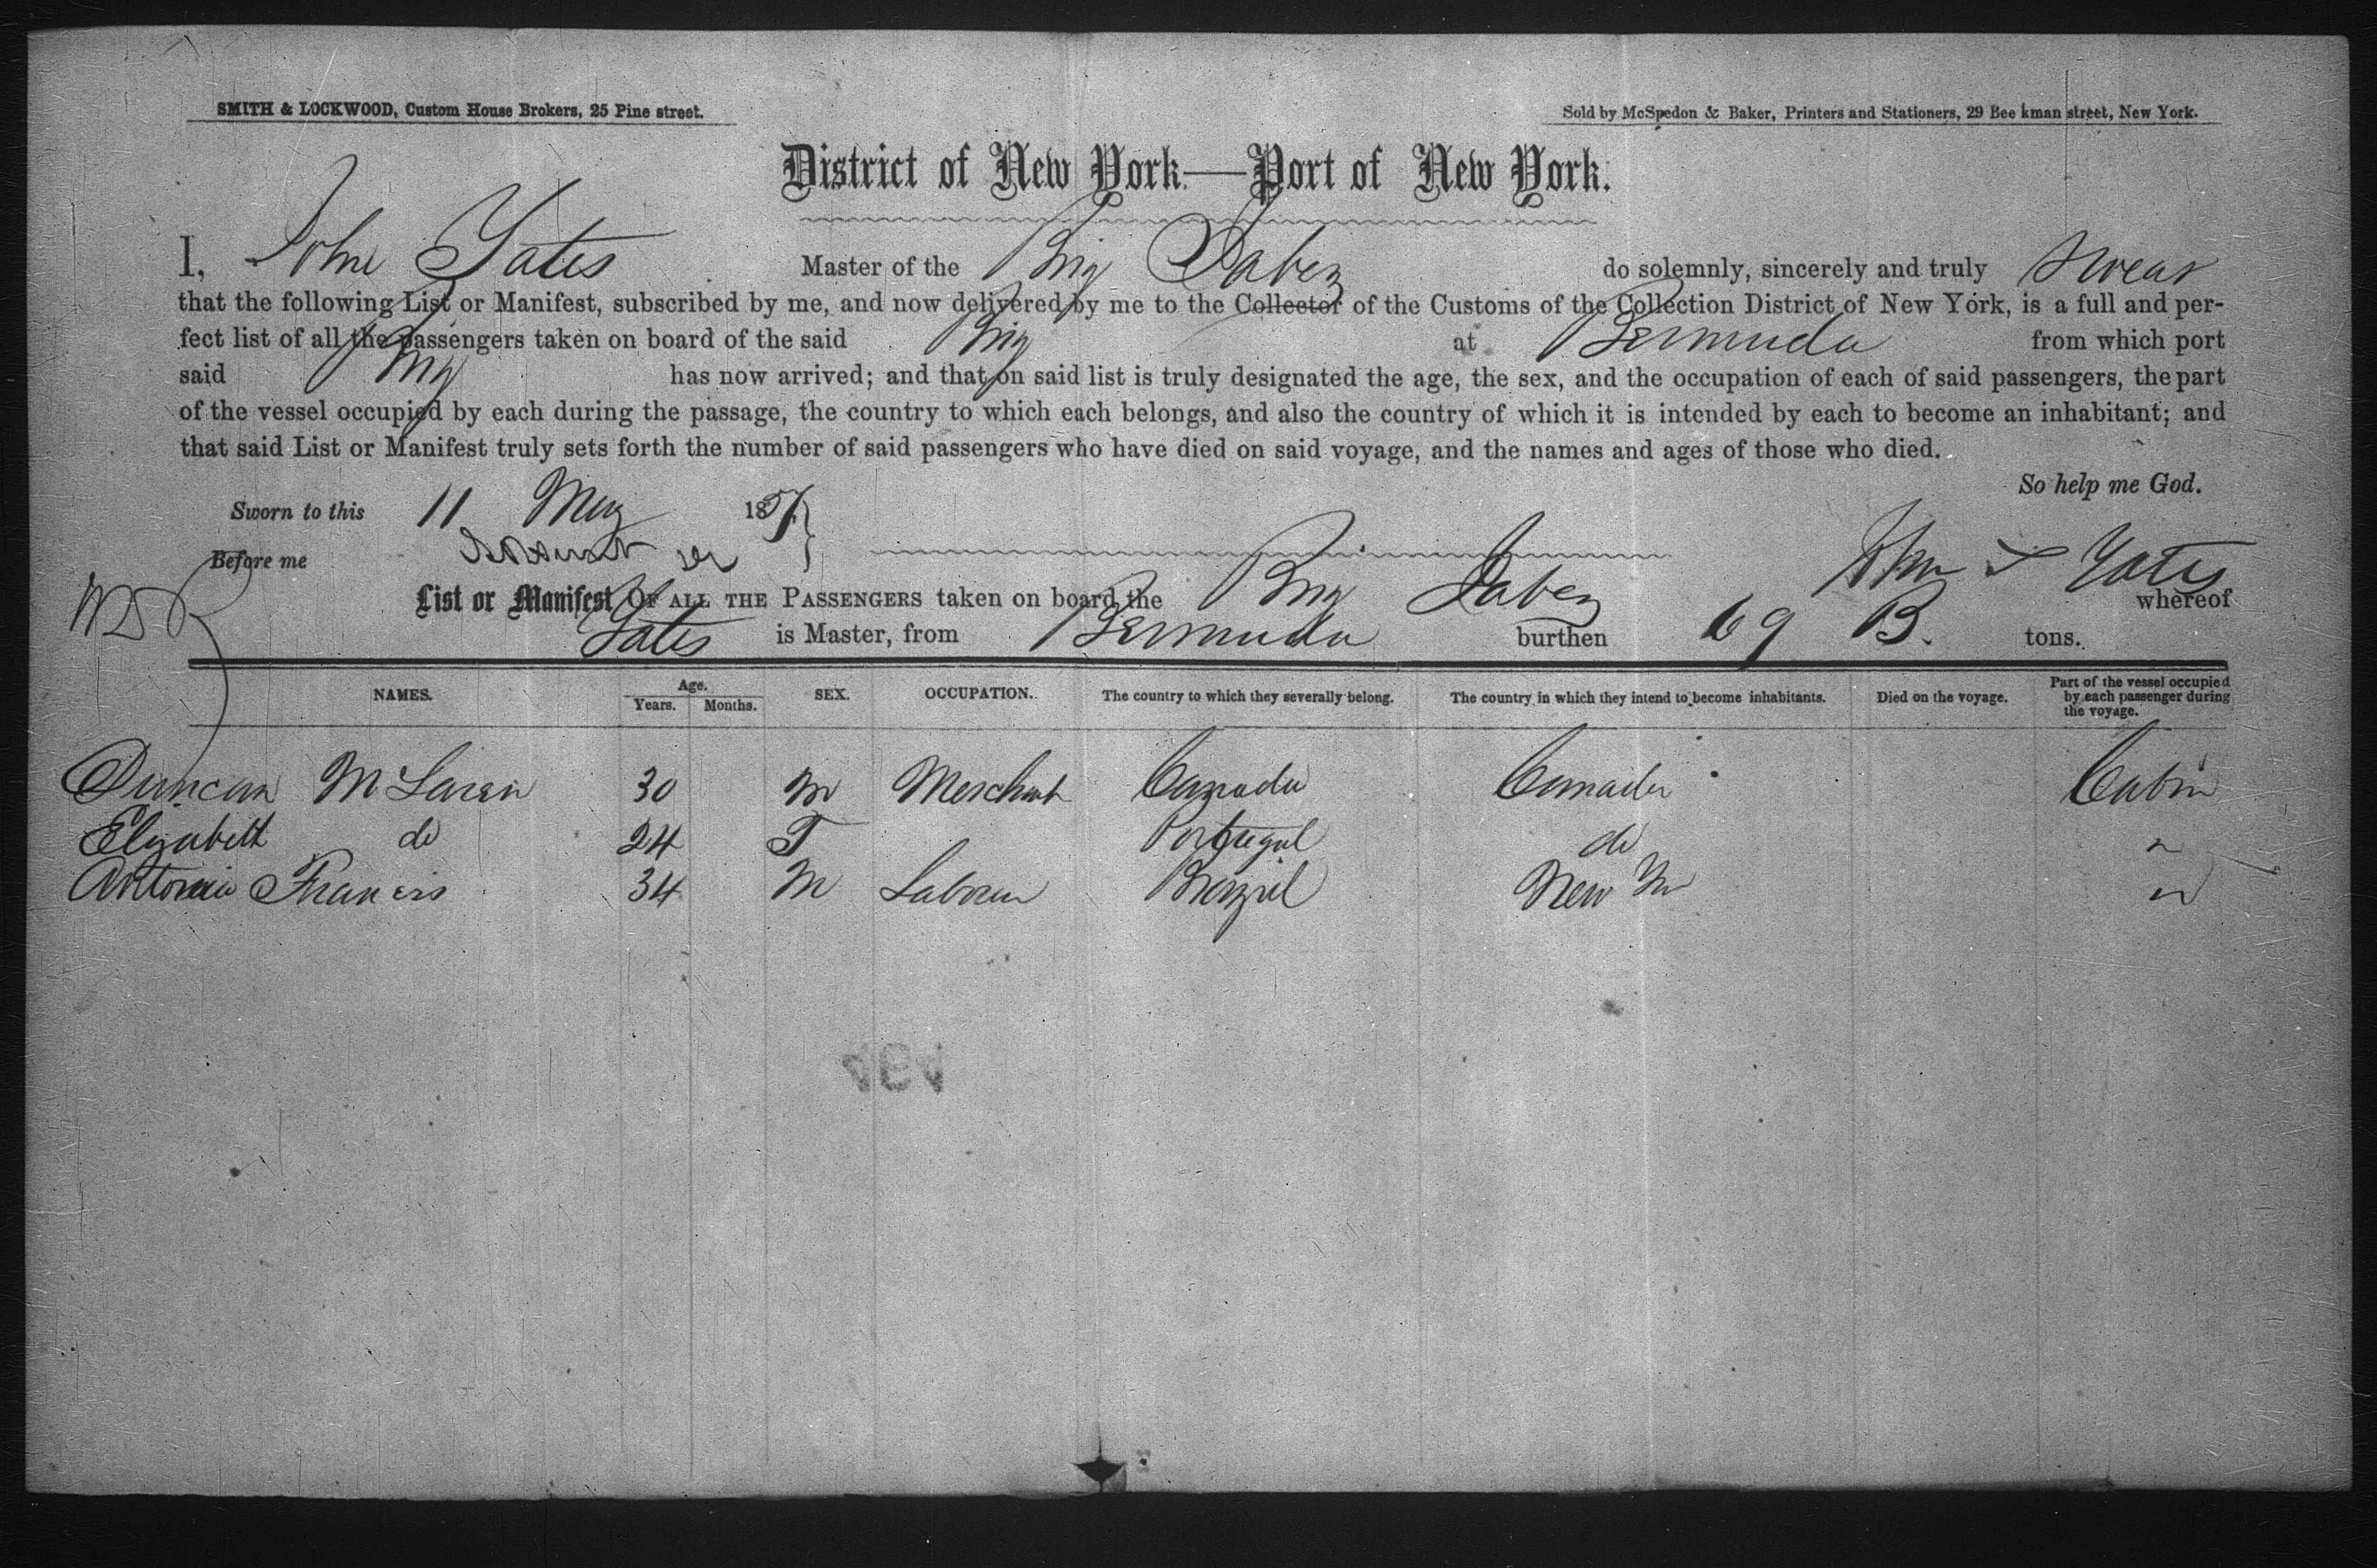 SMITH & LOCKWOOD, Custom House Brokers, 25 Pine street.
Sold by McSpedon & Baker, Printers and Stationers, 29 Beekman street, New York.
District of New York—Port of New York.
I, John Yates Master of the Brig Jabez do solemnly, sincerely and truly swear
that the following List or Manifest, subscribed by me, and now delivered by me to the Collector of the Customs of the Collection District of New York, is a full and per-
fect list of all the passengers taken on board of the said Brig at Bermuda from which port
said Brig has now arrived; and that on said list is truly designated the age, the sex, and the occupation of each of said passengers, the part
of the vessel occupied by each during the passage, the country to which each belongs, and also the country of which it is intended by each to become an inhabitant; and
that said List or Manifest truly sets forth the number of said passengers who have died on said voyage, and the names and ages of those who died.
So help me God.
Sworn to this 11 May 1857
Before me
John Yates
List or Manifest OF ALL THE PASSENGERS taken on board the Brig Jabez whereof
Yates is Master, from Bermuda burthen 169 B. tons.
NAMES. Age. Years. Months. SEX. OCCUPATION. The country to which they severally belong. The country in which they intend to become inhabitants. Died on the voyage. Part of the vessel occupied by each passenger during the voyage.
Duncan McLaren 30 M Merchant Canada Canada Cabin
Elizabeth do 24 F Portugal do "
Antonio Francis 34 M Laborer Brazil New Yor "